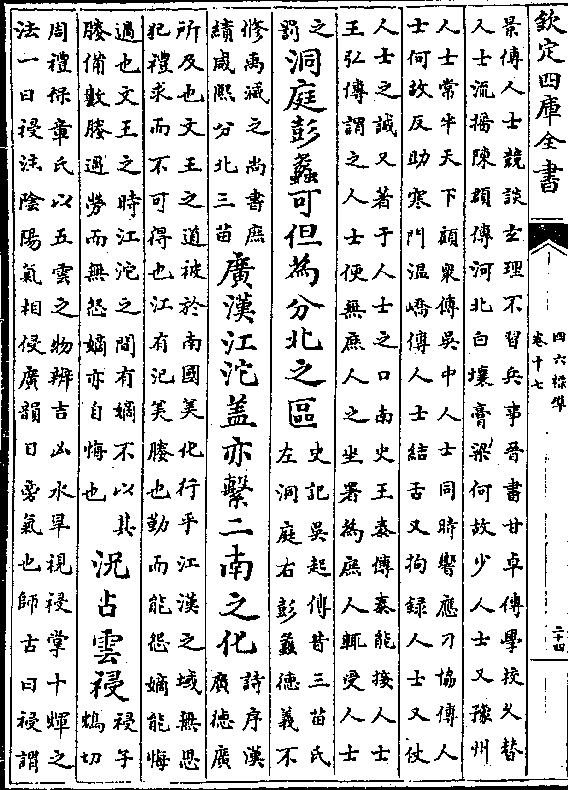 欽定四庫全書
四六標準
卷十七
二十四
景傳人士競談玄理不習兵事晉書甘卓傳學挍久替
人士流播陳頵傳河北白壤膏粱何故少人士又豫州
人士常半天下顧衆傳吳中人士同時響應刁協傳人
士何故反助寒門温嶠傳人士結舌又拘録人士又仗
人士之誠又著于人士之口南史王泰傳泰能接人士
王弘傳謂之人士便無庶人之坐署為庶人輒受人士
之
罰
洞庭彭蠡可但為分北之區
史記吳起傳昔三苗氏
左洞庭右彭蠡德義不
修禹滅之尚書庶
績咸熙分北三苗
廣漢江沱盖亦繫二南之化
詩序漢
廣德廣
所及也文王之道被於南國美化行乎江漢之域無思
犯禮求而不可得也江有汜美媵也勤而能怨嫡能悔
過也文王之時江沱之間有嫡不以其
媵備數媵遇勞而無怨嫡亦自悔也
況占雲祲
祲子
鴆切
周禮保章氏以五雲之物辨吉凶水旱視祲掌十煇之
法一曰祲注陰陽氣相侵廣韻曰旁氣也師古曰祲謂